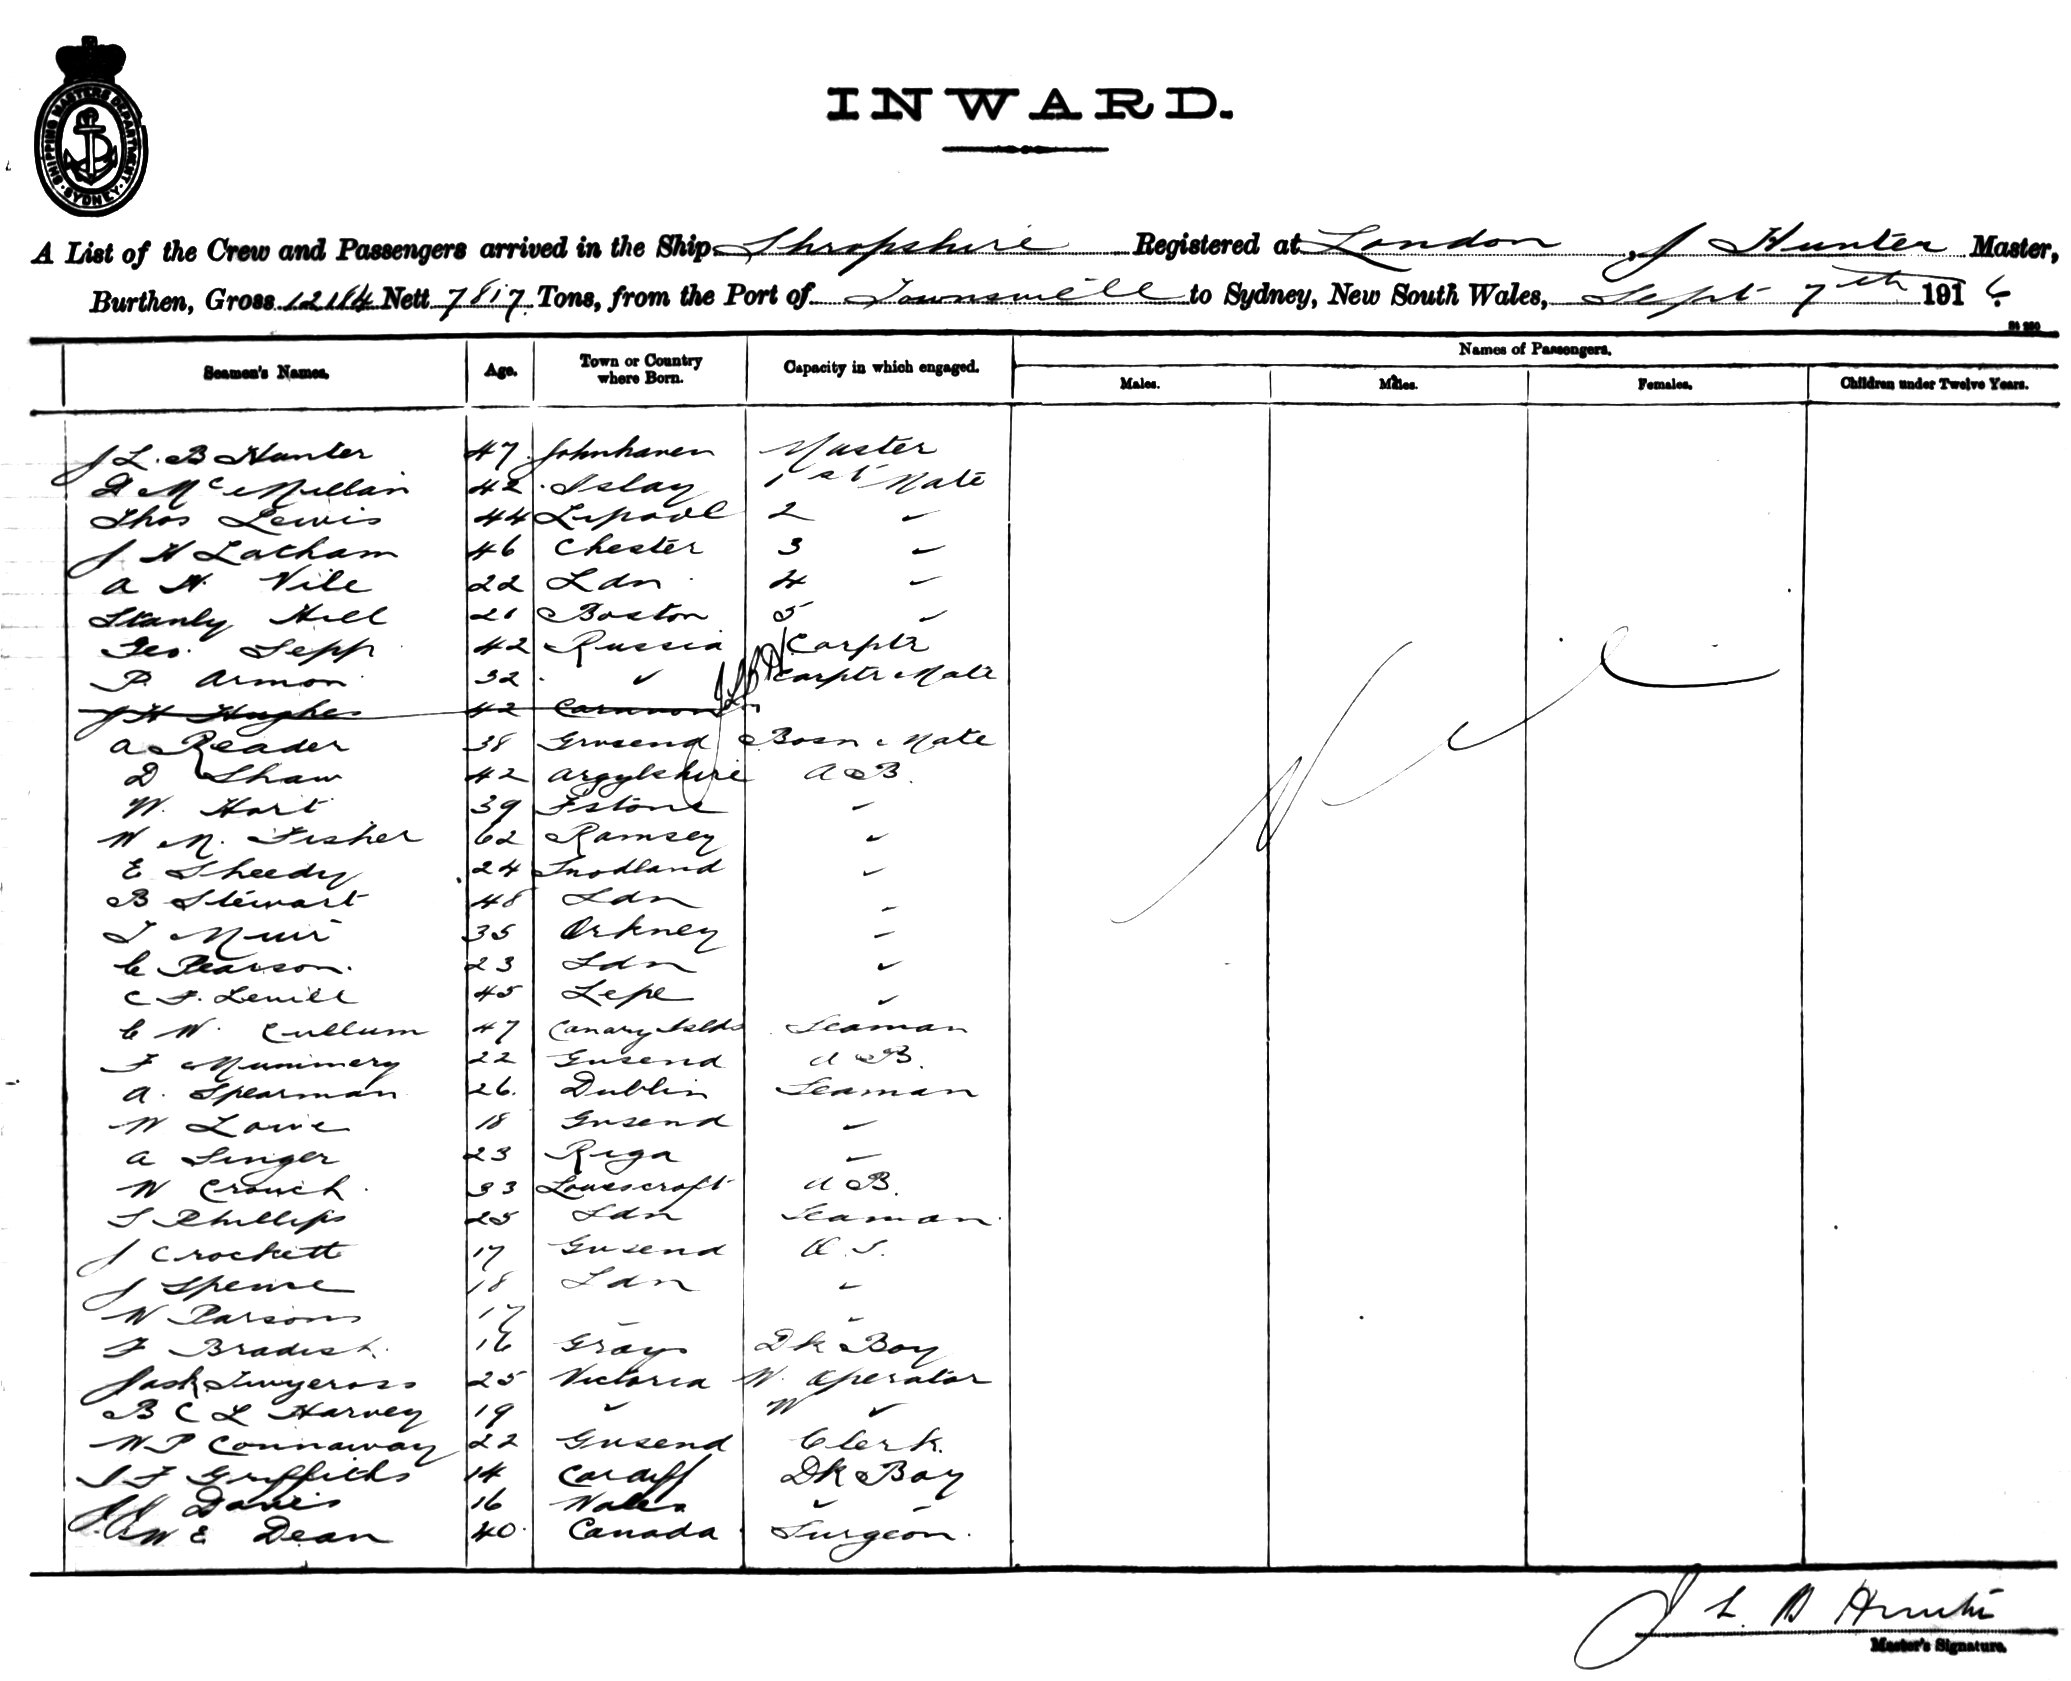 SHIPPING MASTERS DEPARTMENT SYDNEY
INWARD.
A List of the Crew and Passengers arrived in the Ship Shropshire Registered at London, J Hunter Master,
Burthen, Gross 12184 Nett 7817 Tons, from the Port of Townsville to Sydney, New South Wales, Sept 7th 1916
Names of Passengers.
Seamen's Names. Age. Town or Country where Born. Capacity in which engaged. Males. Males. Females. Children under Twelve Years.
J L. B Hunter 47 Johnhaven Master
D McMillan 42 Islay 1st Mate
Thos Lewis 44 Lpool 2 "
J H Latham 46 Chester 3 "
A H Vile 22 Ldn 4 "
Stanly Hill 21 Boston 5 "
Geo. Sepp 42 Russia Carptr
P. Armon 32 " Carptr Mate
J H Hughes 42
A Reader 38 Grvsend Bosn Mate
D Shaw 42 Argylshire A B.
W. Hart 39 Fstone "
W M. Fisher 62 Ramsey "
E Sheedy 24 Snodland "
B Stewart 48 Ldn "
T Muir 35 Orkney "
C Pearson. 23 Ldn "
C F. Lewill 45 Lepe "
C W. Cullum 47 Canary Islds Seaman
F Mummery 22 Gvsend A B.
A. Spearman 26. Dublin Seaman
W Lowe 18 Gvsend "
A Singer 23 Riga "
W Crouch. 33 Lowescroft A B.
S Phillips 25 Ldn Seaman.
J Crockett 17 Gvsend O. S.
J Spence 18 Ldn "
W Parsons 17 " "
F Bradish. 16 Grays Dk Boy
Jack Twycross 25 Victoria W. Operator
B C L Harvey 19 " W "
W P Connaway 22 Gvsend Clerk.
I F Griffiths 14 Cardiff Dk Boy
Davies 16 Wales "
W E Dean 40. Canada Surgeon.
Nil
J L. B Hunter
Master's Signature.